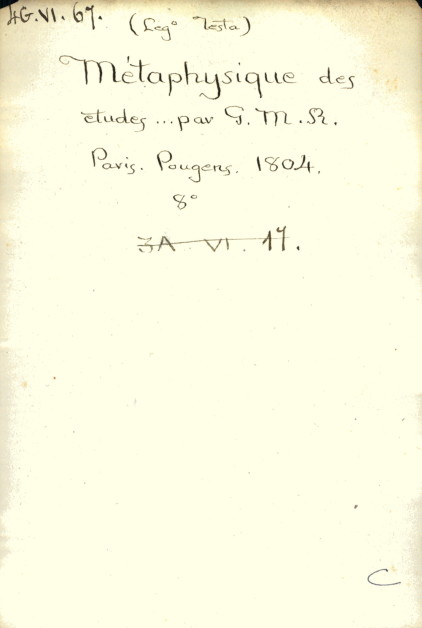 4G.VI.67. (Leg° Testa)
Métaphysique des
études ... par G. M. R.
Paris. Pougens. 1804.
8°
3A. VI. 17.
C